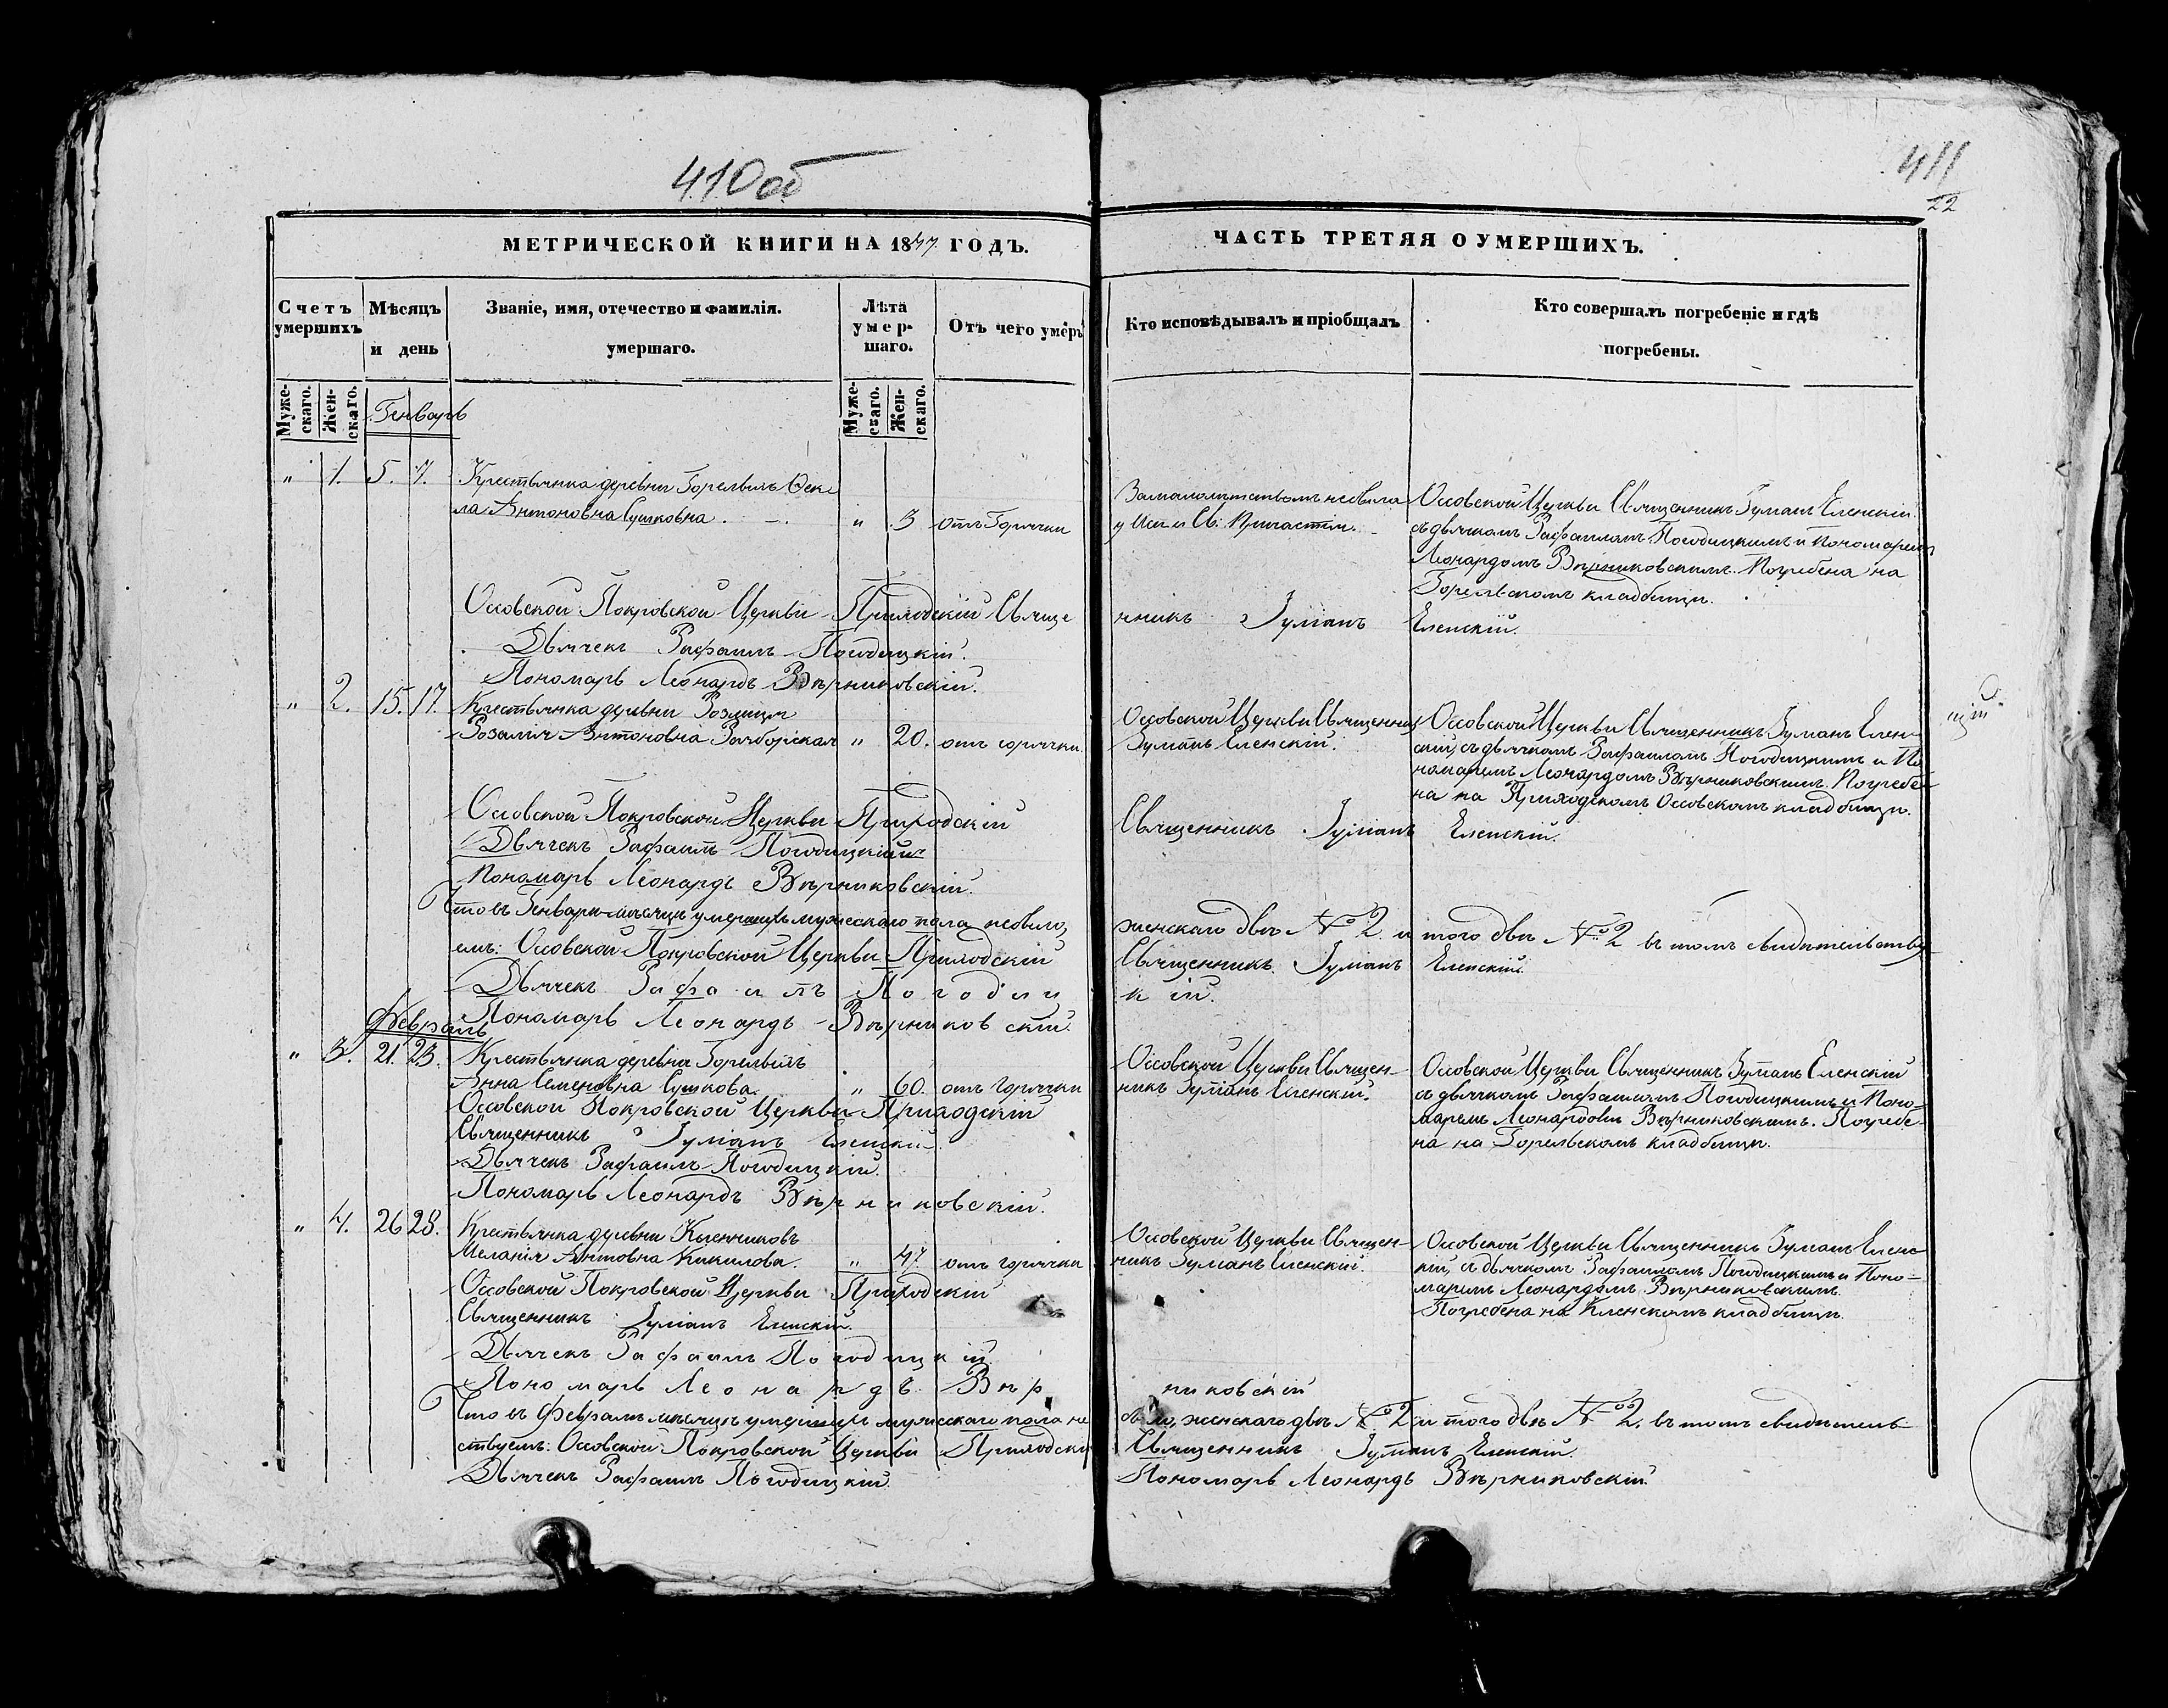 410 об
411
22
МЕТРИЧЕСКОЙ КНИГИ НА 1847. ГОДЪ.
ЧАСТЬ ТРЕТЯЯ О УМЕРШИХЪ.
Счетъ умершихъ
Мѣсяцъ и день
Званіе, имя, отечество и фамилія.
умершаго.
Лѣта умер- шаго.
Отъ чего умеръ
Кто исповѣдывалъ и пріобщалъ
Кто совершалъ погребеніе и гдѣ
погребены.
Муже- скаго.
Жен- скаго.
Муже- скаго.
Жен- скаго.
Генварь
" 1. 5. 7. Крестьянка деревни Фек
ла Антоновна Сушковна. " 3 отъ Горячки
За малолѣтствомъ небыла
у Исп. и Св: Причастія.
Оссовской Церкви Священникъ Иуліанъ Еленскій
съ дьячкомъ Рафаиломъ Погодицкимъ и Пономаремъ
Леонардомъ Вѣрниковскимъ. Погребена на
Горельскомъ кладбищѣ.
Оссовской Покровской Церкви Приходскій Свяще
нникъ Іуліанъ Еленскій.
Дьячекъ Рафаилъ Погодицкій.
Пономарь Леонардъ Вѣрниковскій.
" 2. 15. 17. Крестьянка деревни
Розалія Антоновна " 20. отъ горячки.
Оссовской Церкви Священникъ
Іуліанъ Еленскій.
Оссовской Церкви Священникъ Іуліанъ Елен-
скій, съ дьячкомъ Рафаиломъ Погодицкимъ и По
номаремъ Леонардомъ Вѣрниковскимъ. Погребе-
на на Приходскомъ Оссовскомъ кладбищѣ.
Оссовской Покровской Церкви Приходскій
Священникъ Іуліанъ Еленскій.
Дьячекъ Рафаилъ Погодицкій
Пономарь Леонардъ Вѣрниковскій.
Что въ Генварѣ мѣсяцѣ умершихъ мужескаго пола небыло,
женскаго двѣ № 2. и того двѣ № 2 въ томъ свидѣтельству
емъ: Оссовской Покровской Церкви Приходскій
Священникъ Іуліанъ Еленскій.
Дьячекъ Рафаилъ Погодиц
кій.
Пономарь Леонардъ Вѣрниковскій.
Февраль
" 3. 21. 23. Крестьянка деревни
Анна Семеновна Сушкова. " 60. отъ горячки
Оссовской Церкви Священ-
никъ Іуліанъ Еленскій.
Оссовской Церкви Священникъ Іуліанъ Еленскій
съ дьячкомъ Рафаиломъ Погодицкимъ и Поно-
маремъ Леонардомъ Вѣрниковскимъ. Погребе-
на на Горельскомъ кладбищѣ.
Оссовской Покровской Церкви Приходскій
Священникъ Іуліанъ Еленскій
Дьячекъ Рафаилъ Погодицкій.
Пономарь Леонардъ Вѣрниковскій.
" 4. 26 28. Крестьянка деревни
Меланія " 47 отъ горячки
Оссовской Церкви Священ-
никъ Іуліанъ Еленскій.
Оссовской Церкви Священникъ Іуліанъ Еленс
кій, съ дьячкомъ Рафаиломъ Погодицкимъ и Поно-
маремъ Леонардомъ Вѣрниковскимъ.
Погребена на кладбищѣ.
Оссовской Покровской Церкви Приходскій
Священникъ Іуліанъ Еленскій.
Дьячекъ Рафаилъ Погодицкій.
Пономарь Леонардъ Вѣр
никовскій
Что въ Февралѣ мѣсяцѣ умершихъ мужескаго пола не
было, женскаго двѣ № 2 и того двѣ № 2, въ томъ свидѣтель-
ствуемъ: Оссовской Покровской Церкви Приходскій
Священникъ Іуліанъ Еленскій.
Дьячекъ Рафаилъ Погодицкій.
Пономарь Леонардъ Вѣрниковскій.